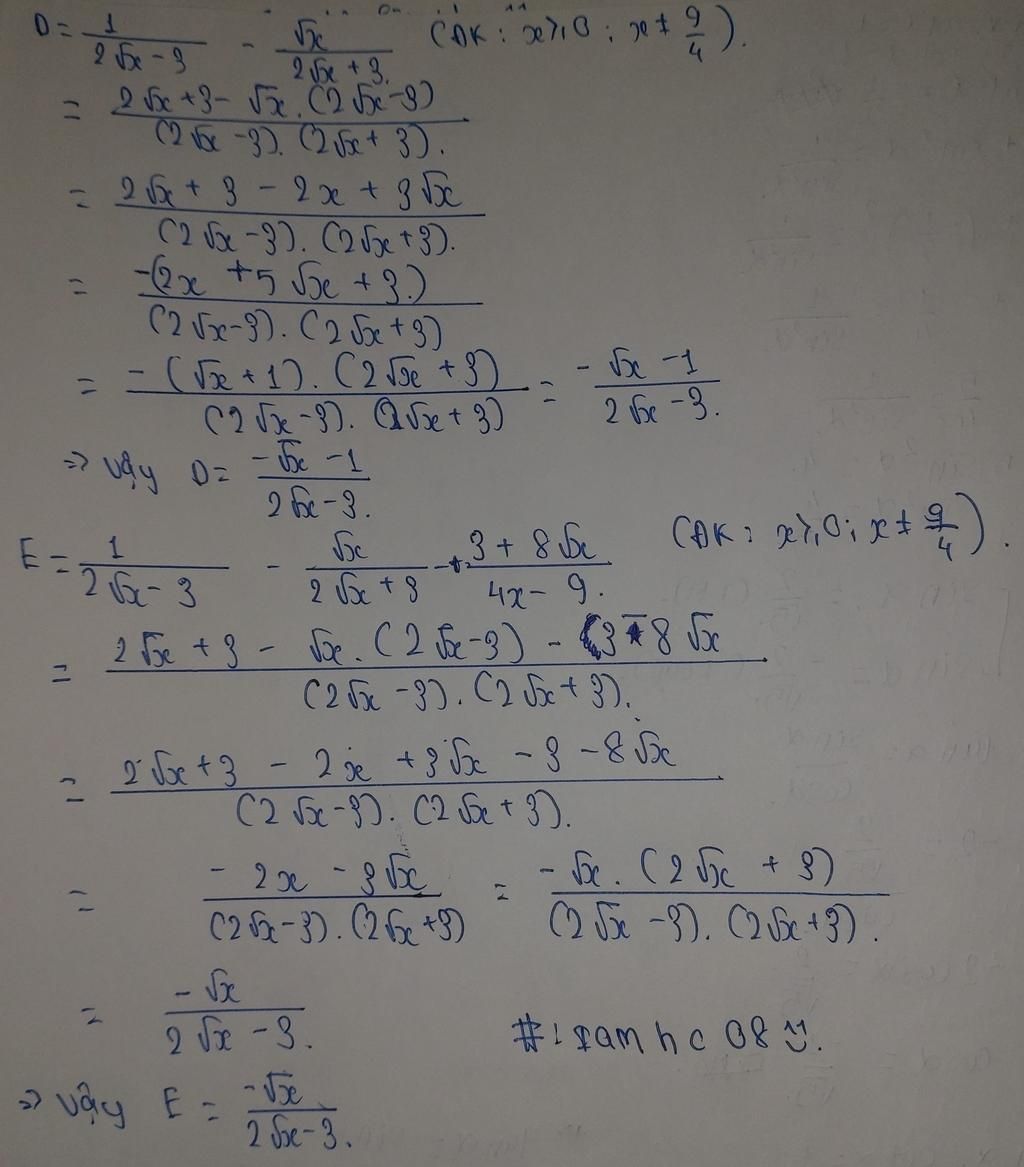 D = 1/(2√x - 3) - √x/(2√x + 3) (ĐK: x ≥ 0; x ≠ 9/4).
= (2√x + 3 - √x.(2√x - 3))/((2√x - 3).(2√x + 3)).
= (2√x + 3 - 2x + 3√x)/((2√x - 3).(2√x + 3)).
= -(2x + 5√x + 3)/((2√x - 3).(2√x + 3))
= -(√x + 1).(2√x + 3)/((2√x - 3).(2√x + 3)) = (-√x - 1)/(2√x - 3).
=> Vậy D = (-√x - 1)/(2√x - 3).
E = 1/(2√x - 3) - √x/(2√x + 3) - (3 + 8√x)/(4x - 9). (ĐK: x ≥ 0; x ≠ 9/4).
= (2√x + 3 - √x.(2√x - 3) - 3 - 8√x)/((2√x - 3).(2√x + 3)).
= (2√x + 3 - 2x + 3√x - 3 - 8√x)/((2√x - 3).(2√x + 3)).
= (-2x - 3√x)/((2√x - 3).(2√x + 3)) = -√x.(2√x + 3)/((2√x - 3).(2√x + 3)).
= -√x/(2√x - 3).
=> Vậy E = -√x/(2√x - 3).